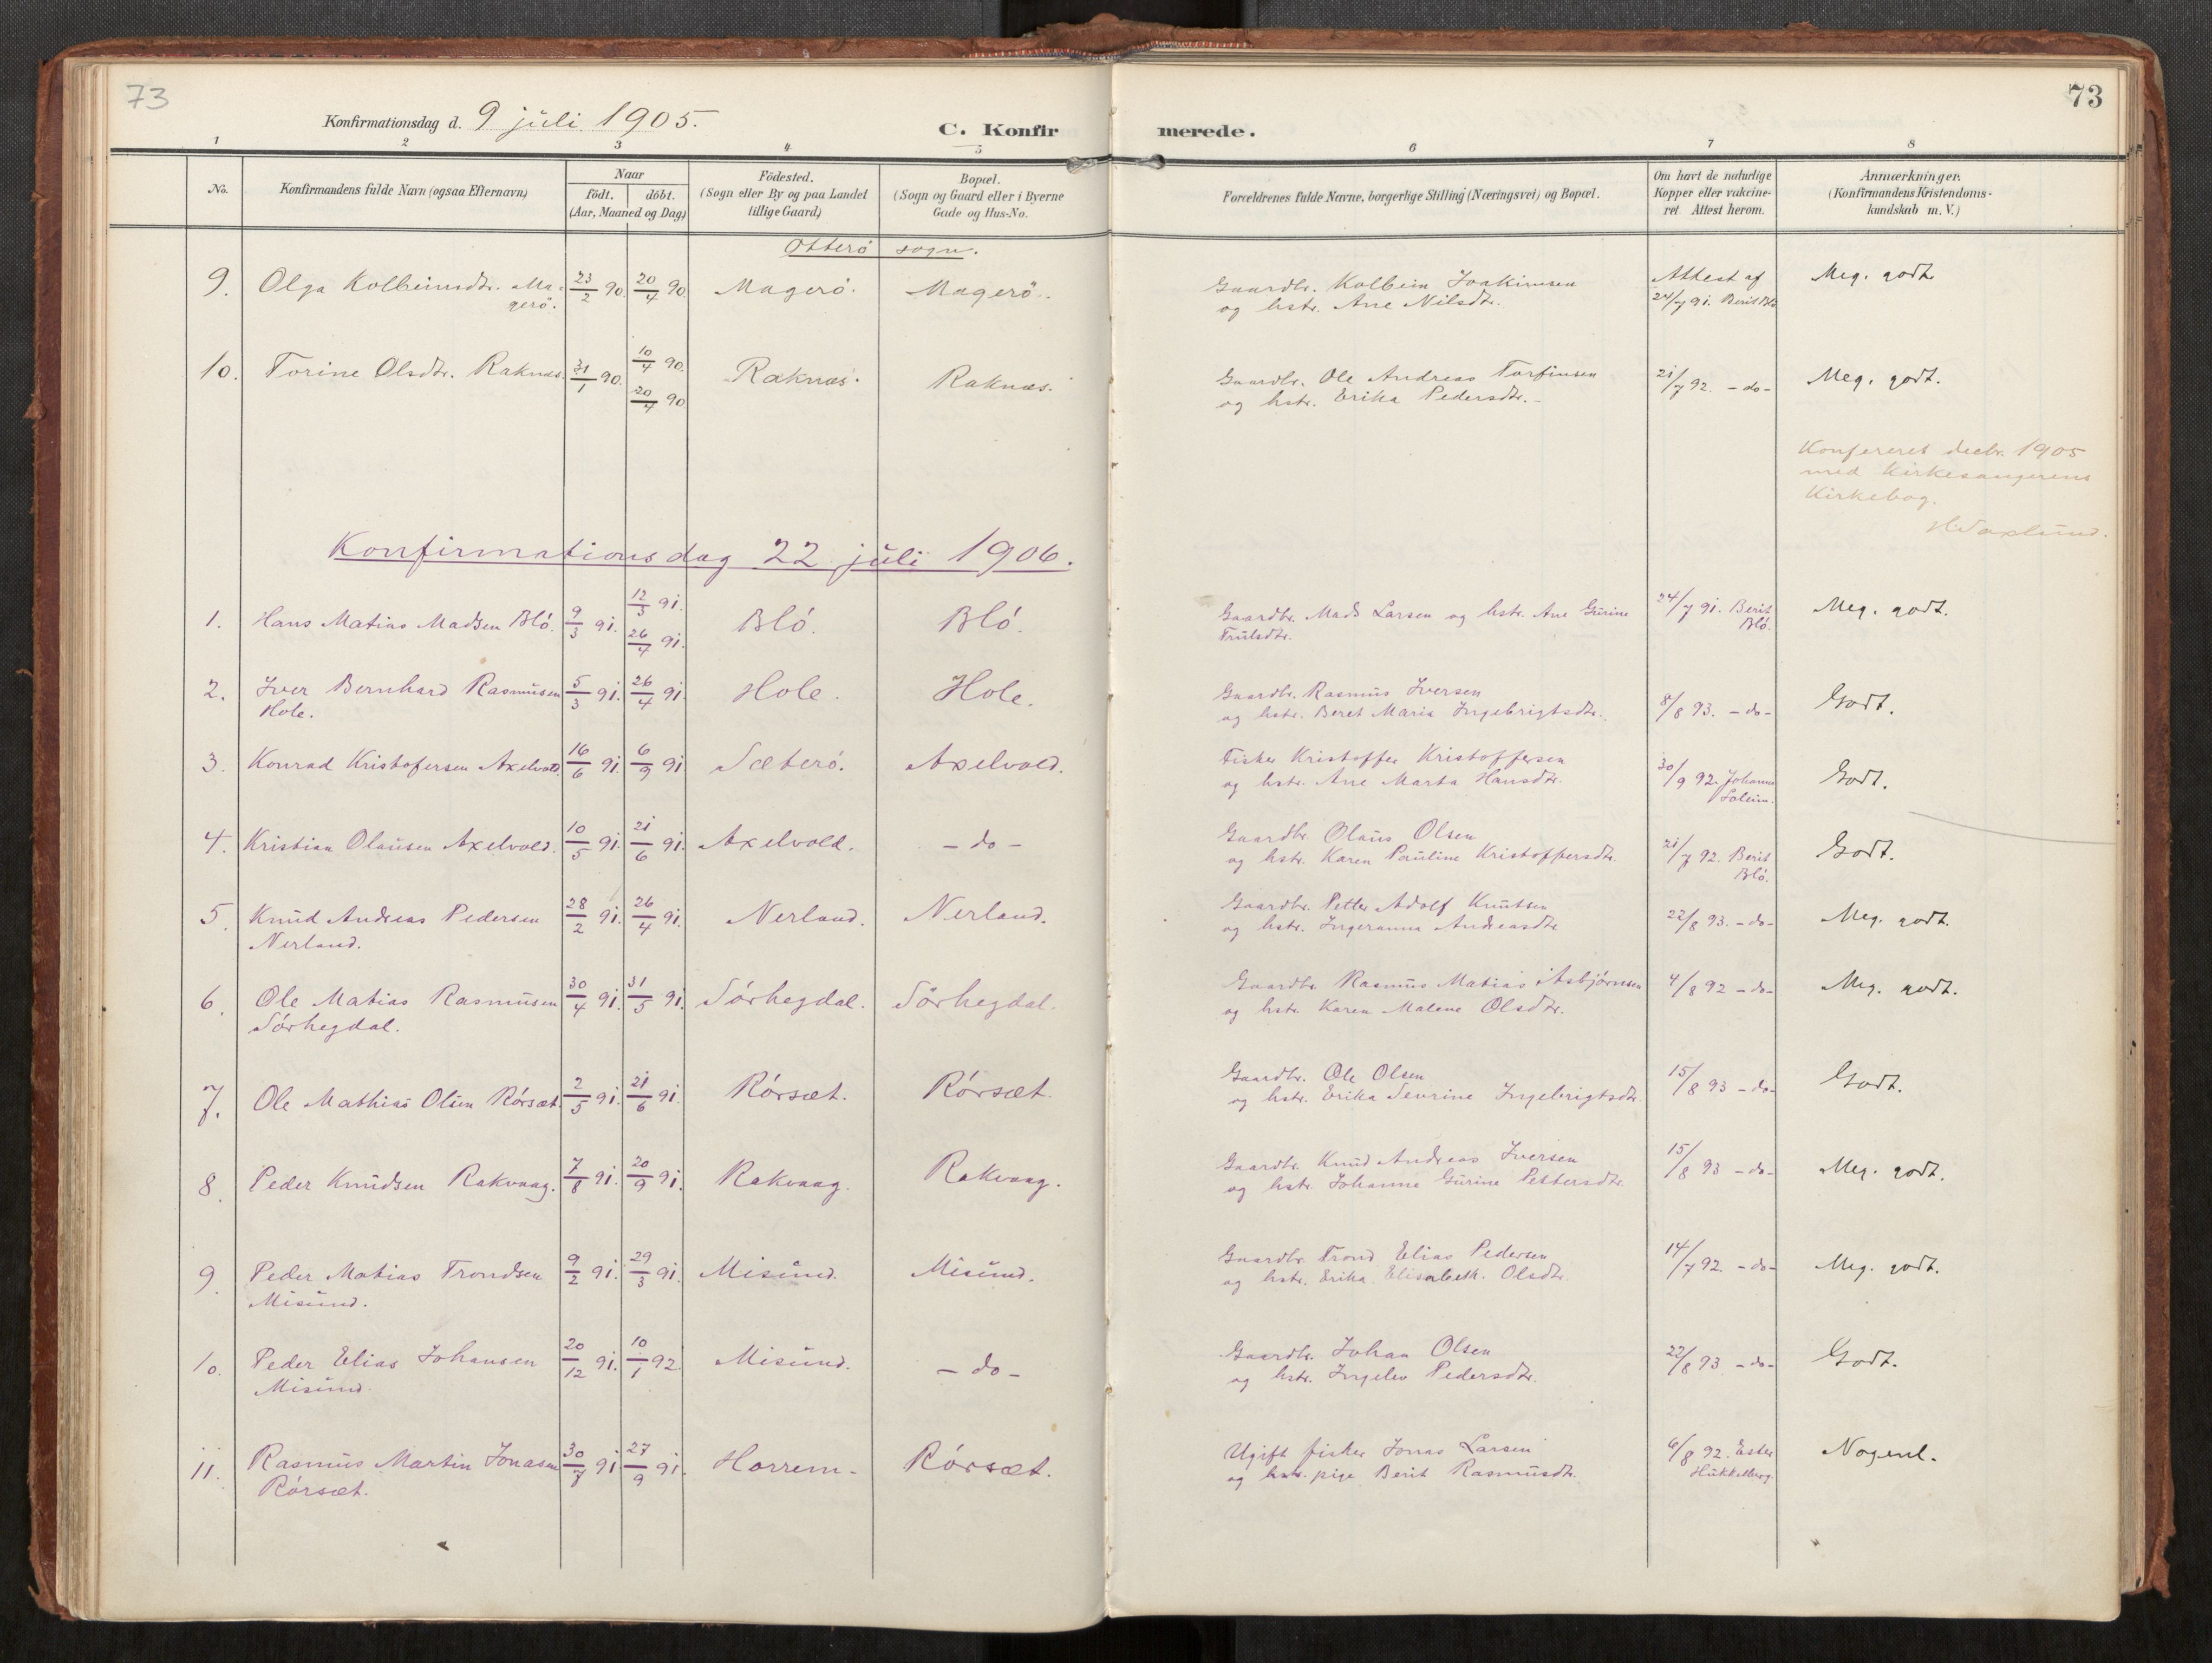 73
73
Konfirmationsdag d. 9 juli 1905.
C. Konfirmerede.
1 2 3 4 5 6 7 8
No.
Konfirmandens fulde Navn (ogsaa Efternavn)
Naar
födt. döbt.
(Aar, Maaned og Dag)
Födested.
(Sogn eller By og paa Landet
tillige Gaard)
Bopæl.
(Sogn og Gaard eller i Byerne
Gade og Hus-No.
Forældrenes fulde Navne, borgerlige Stilling (Næringsvei) og Bopæl.
Om havt de naturlige
Kopper eller vakcine-
ret Attest herom.
Anmærkninger.
(Konfirmandens Kristendoms-
kundskab m. V.)
Otterö sogn.
9. Olga Kolbeinsdtr. Ma- 23/2 90. 20/4 90. Magerö. Magerö. Gaardbr. Kolbein Joakimsen Attest af Meg. godt
gerö. og hstr. Ane Nilsdtr. 24/7 91. Berit Bló
10. Torine Olsdtr. Raknæs. 31/1 90. 10/4 90. Raknæs. Raknæs. Gaardbr. Ole Andreas Torfinsen 21/7 92. - do - Meg. godt.
20/4 90 og hstr. Erika Pedersdtr. -
Konfereret decbr. 1905
med Kirkesangerens
Kirkebog.
Konfirmationsdag 22 juli 1906.
1. Hans Matias Madsen Bló. 9/3 91. 12/3 91. Bló. Bló. Gaardbr. Mads Larsen og hstr. Ane Gurine 24/7 91. Berit Meg. godt.
26/4 91. Trulsdtr. Bló.
2. Iver Bernhard Rasmusen 5/3 91. 26/4 91. Hole. Hole. Gaardbr. Rasmus Iversen Godt.
Hole. og hstr. Beret Maria Ingebrigtsdtr. 8/8 93. - do -
3. Konrad Kristofersen Axelvold. 16/6 91. 6/9 91 Sæteró. Axelvold. Fisker Kristoffer Kristoffersen 30/9 92. Johanne Godt.
og hstr. Ane Marta Hansdtr. Soleim.
4. Kristian Olausen Axelvold. 10/5 91. 21/6 91. Axelvold. - do - Gaardbr. Olaus Olsen 21/7 92. Berit Godt.
og hstr. Karen Pauline Kristoffersdtr. Bló.
5. Knud Andreas Pedersen 28/2 91. 26/4 91. Nerland. Nerland. Gaardbr. Petter Adolf Knutsen 22/8 93. - do - Meg. godt.
Nerland. og hstr. Ingeranna Andreasdtr
6. Ole Matias Rasmusen 30/4 91. 31/5 91. Sórhegdal. Sórhegdal. Gaardbr. Rasmus Matias Asbjórnsen 4/8 92 - do - Meg. godt.
Sórhegdal. og hstr. Karen Malene Olsdtr.
7. Ole Mathias Olsen Rórsæt. 2/5 91. 21/6 91. Rórsæt. Rórsæt. Gaardbr. Ole Olsen 15/8 93 - do - Godt.
og hstr. Erika Sevrine Ingebrigtsdtr.
8. Peder Knudsen Rakvaag. 7/8 91. 20/9 91. Rakvaag. Rakvaag. Gaardbr. Knud Andreas Iversen 15/8 93 - do - Meg. godt.
og hstr. Johanne Gurine Pettersdtr.
9. Peder Matias Trondsen 9/2 91. 29/3 91. Misund. Misund. Gaardbr. Trond Elias Pedersen 14/7 92. - do - Meg. godt.
Misund. og hstr. Erika Elisabeth. Olsdtr.
10. Peder Elias Johansen 20/12 91. 10/1 92. Misund. - do - Gaardbr. Johan Olsen 22/8 93. - do - Godt.
Misund. og hstr. Ingelev Pedersdtr.
11. Rasmus Martin Jonasen 30/7 91. 27/9 91. Horrem. Rórsæt. Ugift fisker Jonas Larsen 6/8 92. Ester Nogenl.
Rórsæt. og pige Berit Rasmusdtr. Hukkelberg.